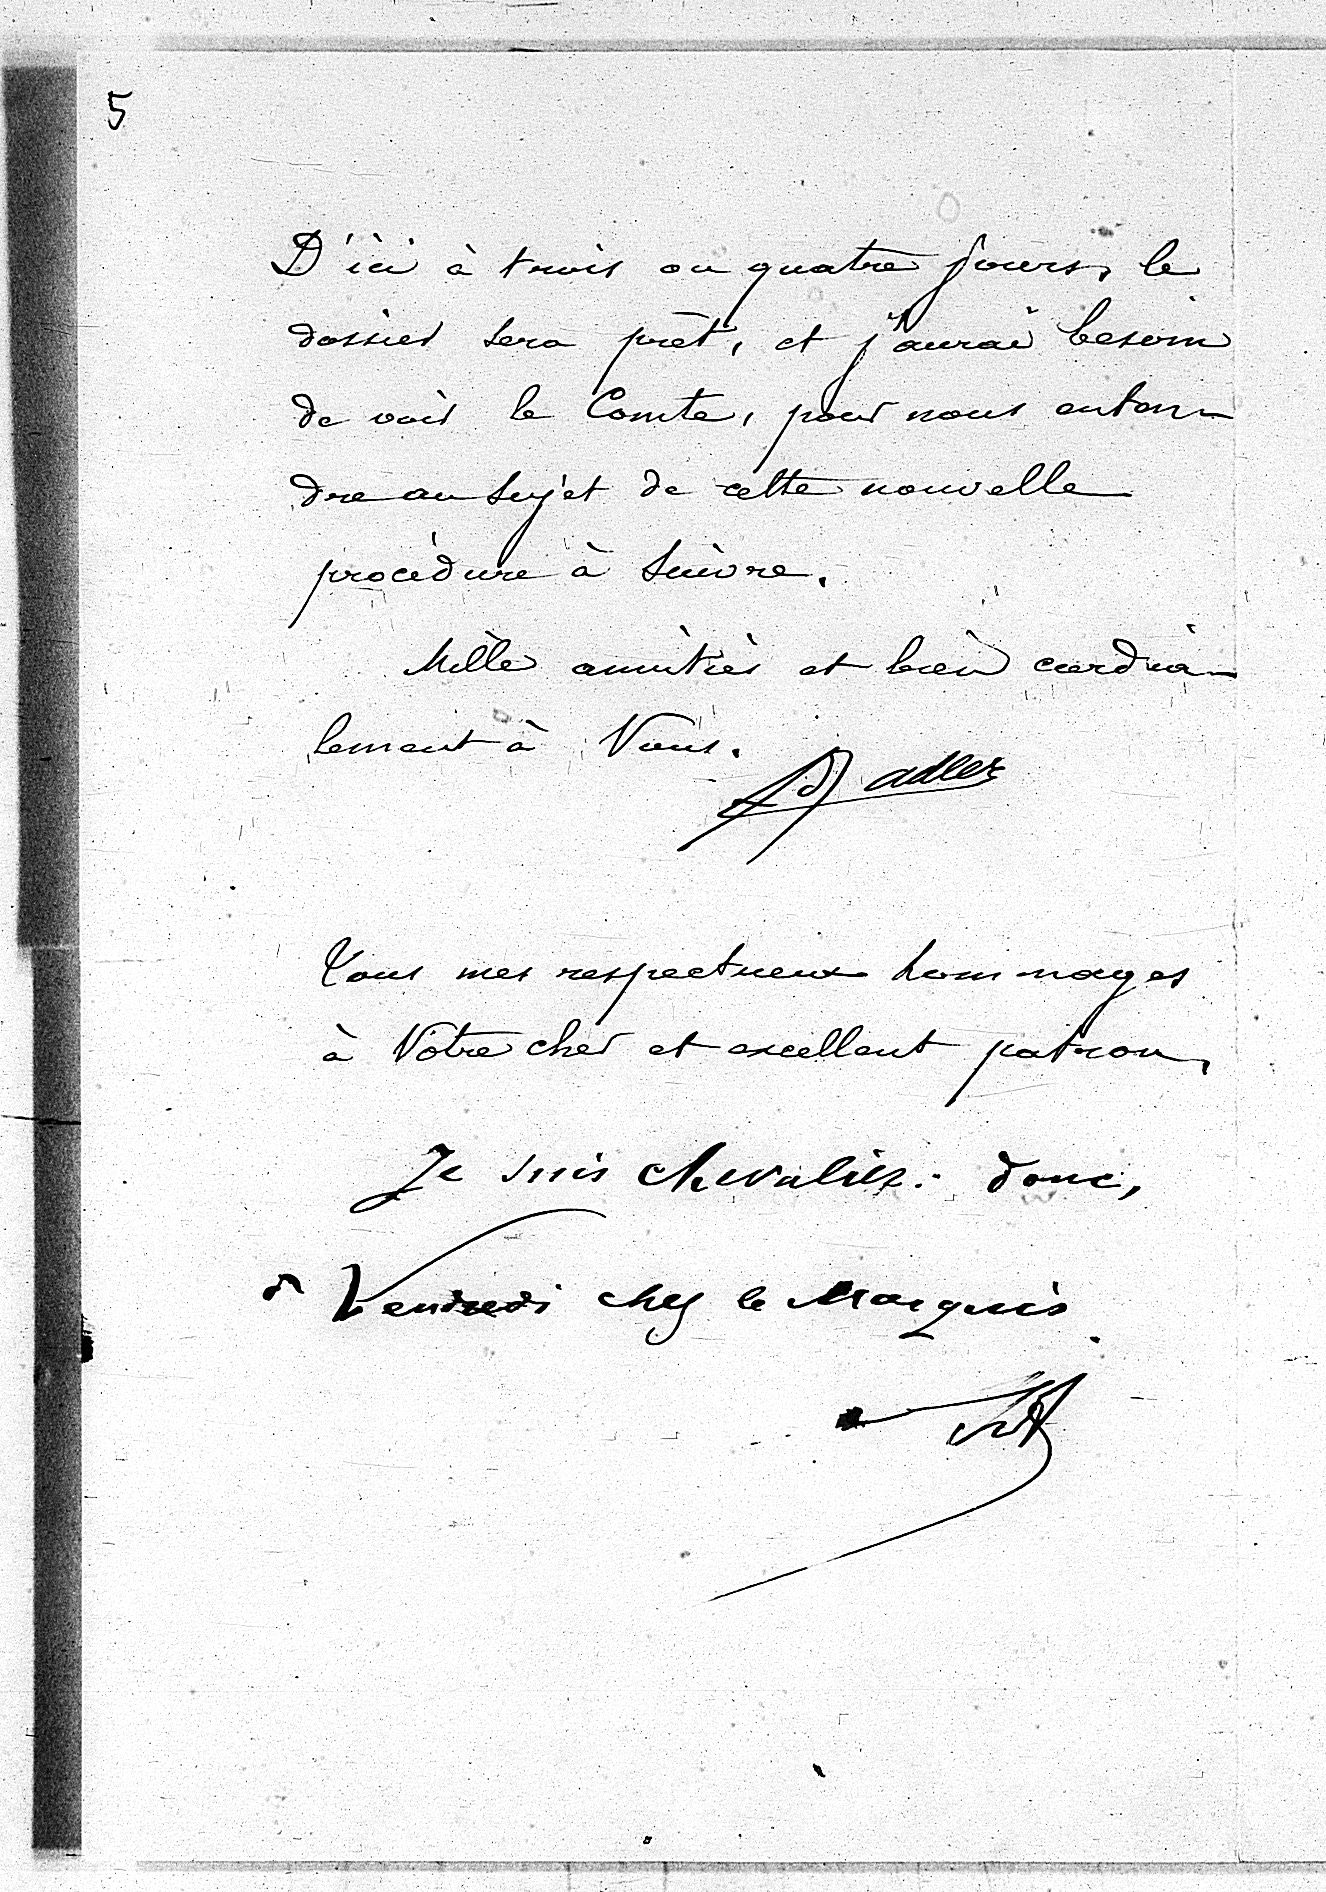 5
D'ici à trois ou quatre jours, le
dossier sera prêt, et j'aurai besoin
de voir le Comte, pour nous enten-
dre au sujet de cette nouvelle
procédure à suivre.
Mille amitiés et bien cordia-
lement à Vous.
adler
Tous mes respectueux hommages
à Votre cher et excellent patron,
Je suis chevalier. donc,
à Vendredi chez le Marquis.